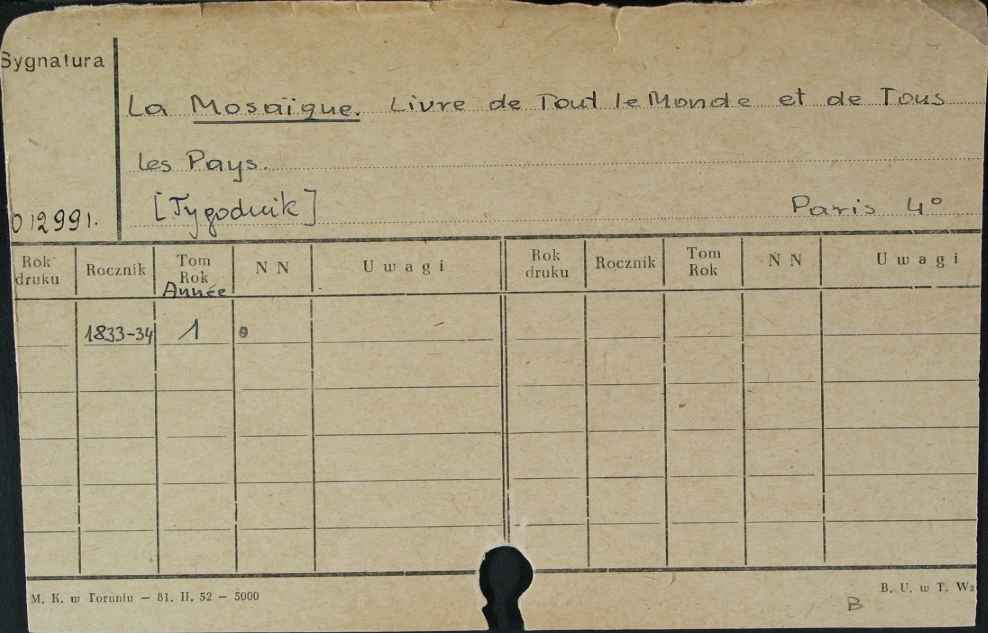 Sygnatura
La Mosaïque. Livre de Tout le Monde et de Tous
les Pays.
[Tygodnik] Paris 4°
012991.
Rok druku Rocznik Tom Rok Année N N Uwagi Rok druku Rocznik Tom Rok N N Uwagi
1833-34 1
M. K. w Toruniu — 81. II. 52 — 5000
B. U. w T.
B